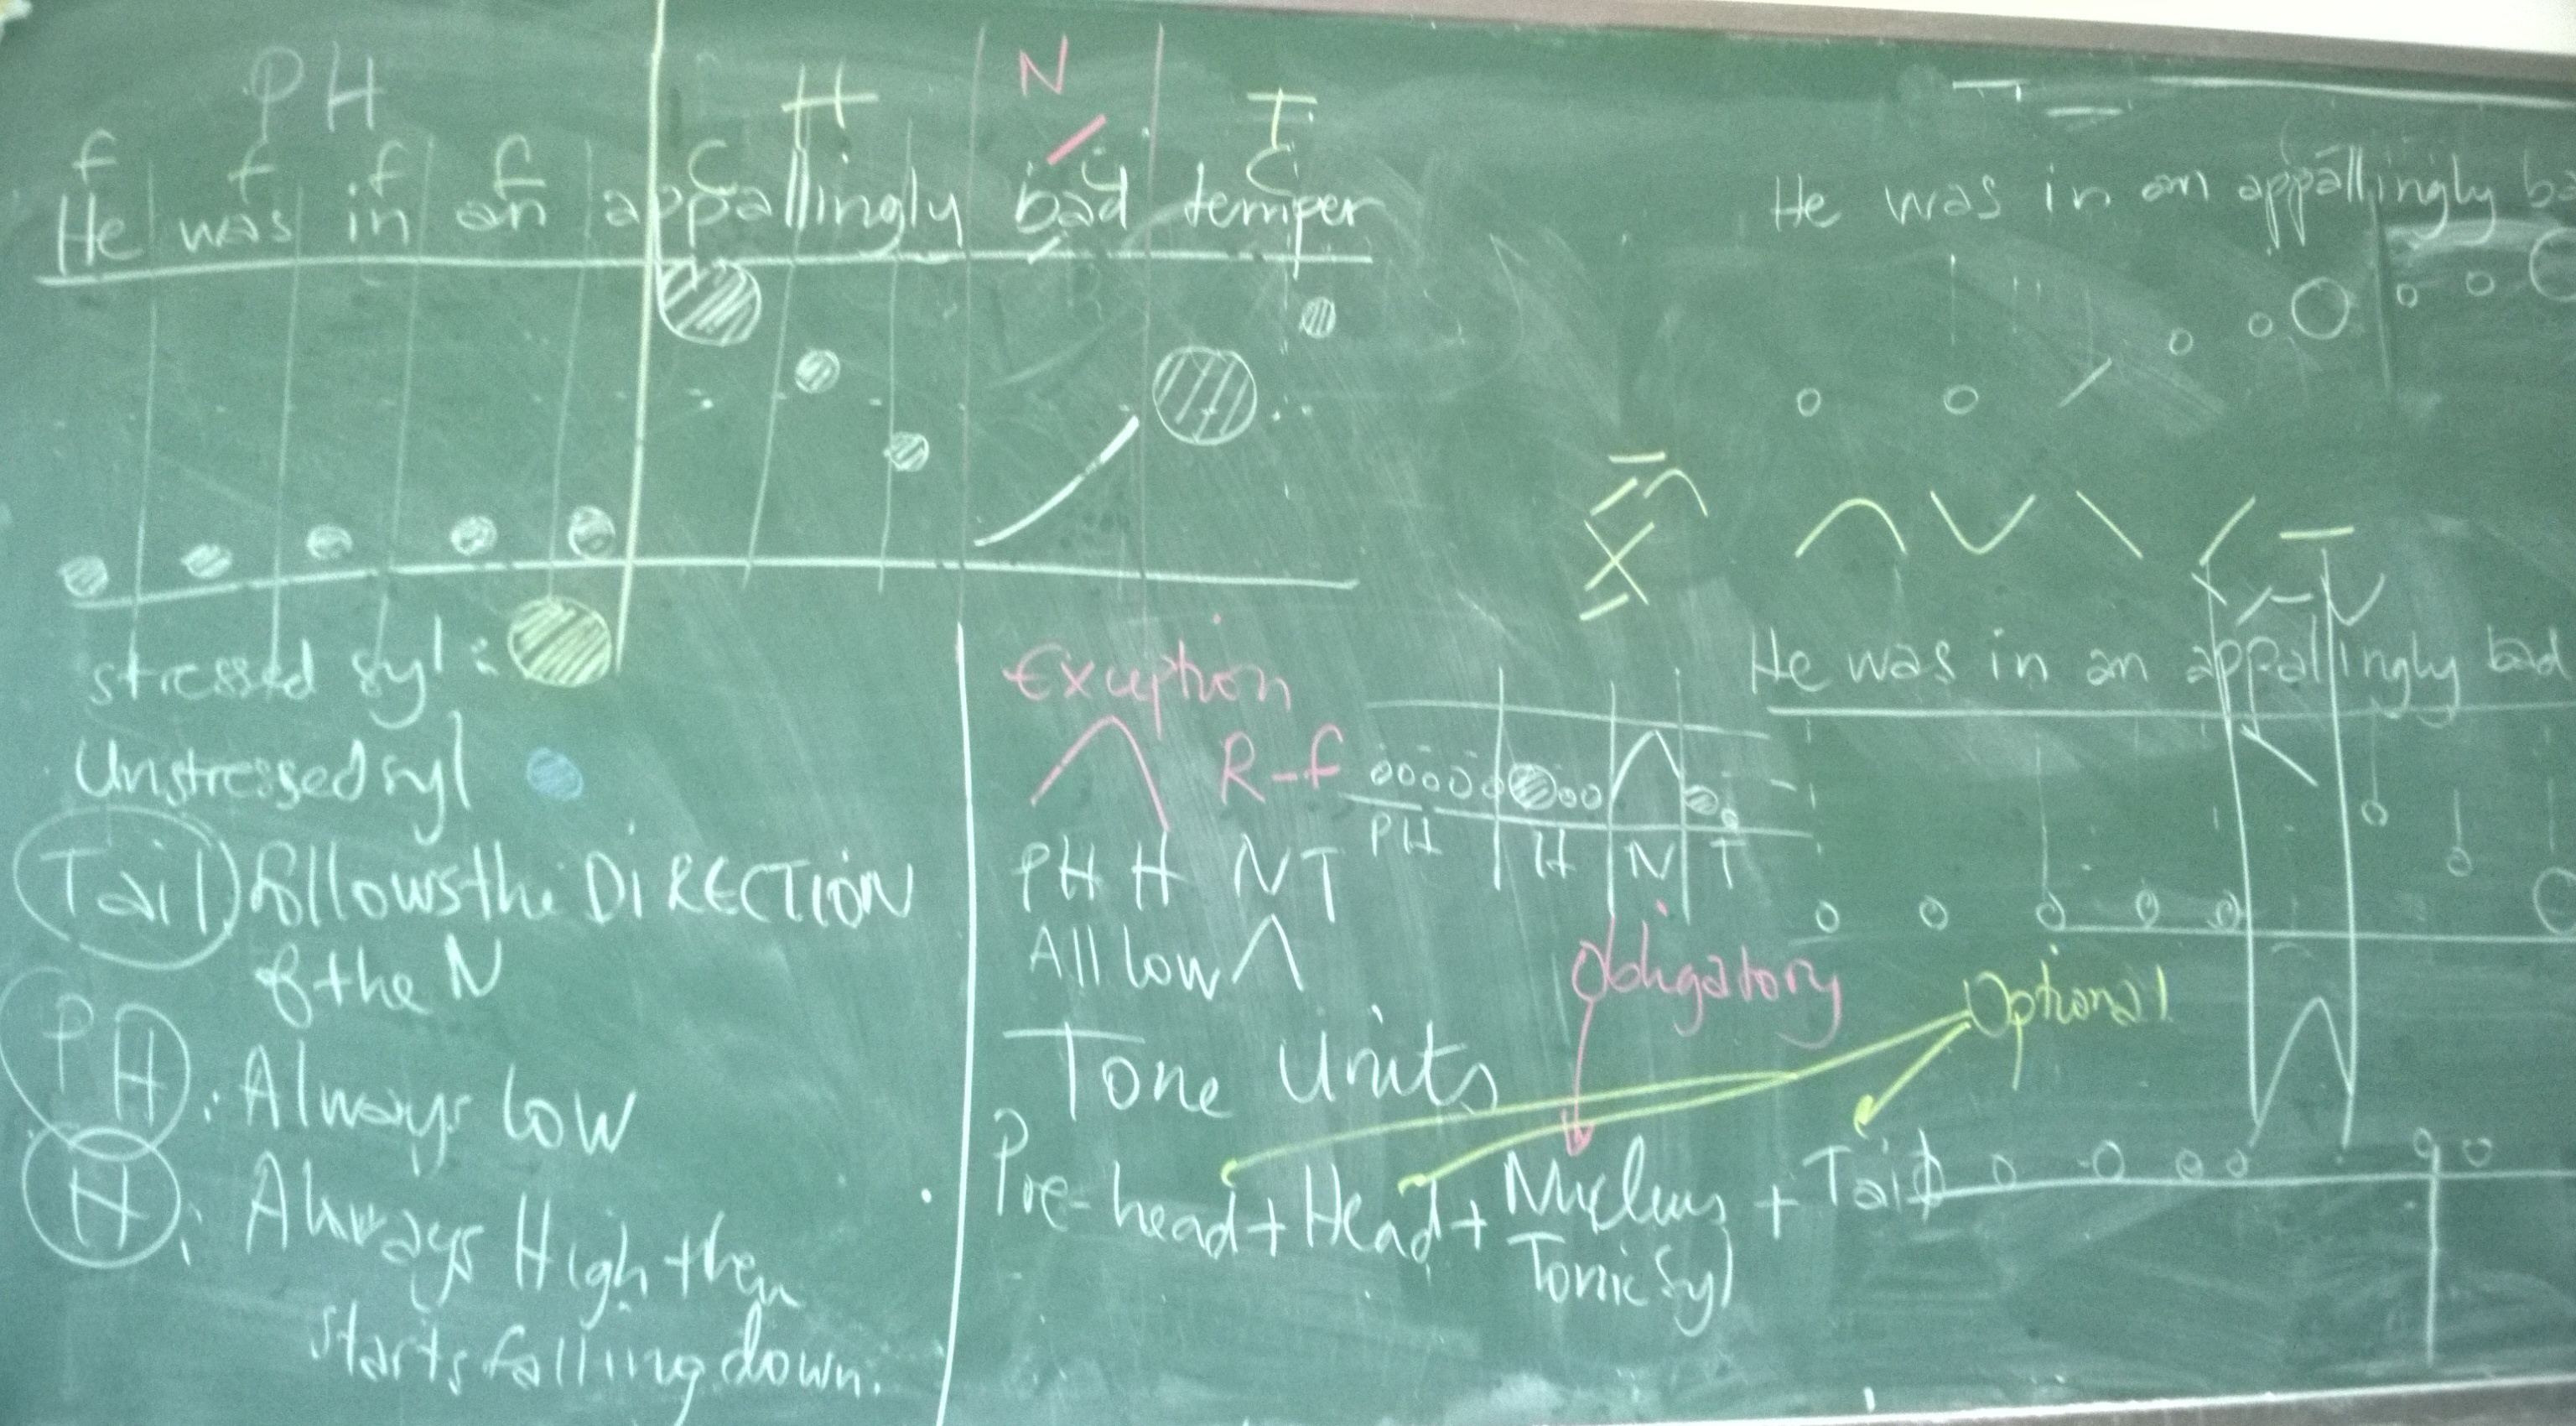 PH H N T
f f f f C C C
He was in an appallingly bad temper
stressed syl :
Unstressed syl
Tail follows the DIRECTION
of the N
PH : Always low
H : Always High then
starts falling down.
Exception
R-f
PH H N T
PH H N T
All low
Obligatory
Optional
Tone Units
Pre-head + Head + Nucleus + Tail
Tonic syl
He was in an appallingly ba
He was in an appallingly bad